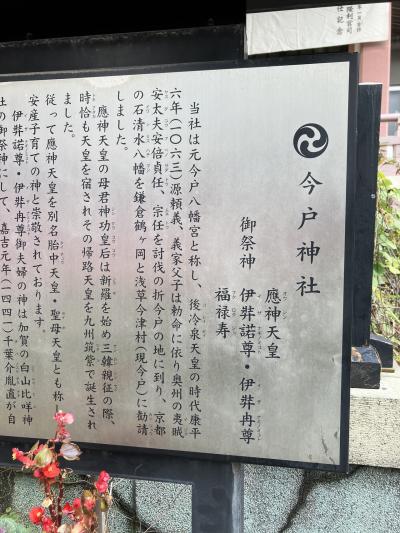 今戸神社
御祭神
應神天皇
伊弉諾尊・伊弉冉尊
福禄寿
当社は元今戸八幡宮と称し、後冷泉天皇の時代康平
六年(一〇六三)源頼義、義家父子は勅命に依り奥州の夷賊
安太夫安倍貞任、宗任を討伐の折今戸の地に到り、京都
の石清水八幡を鎌倉鶴ヶ岡と浅草今津村(現今戸)に勧請
しました。
應神天皇の母君神功皇后は新羅を始め三韓親征の際、
時恰も天皇を宿されその帰路天皇を九州筑紫で誕生され
ました。
従って應神天皇を別名胎中天皇・聖母天皇とも称
安産子育ての神と崇敬されております。
伊弉諾尊・伊弉冉尊御夫婦の神は加賀の白山比咩神
社の御祭神にして、嘉吉元年(一四四一)千葉介胤直が自